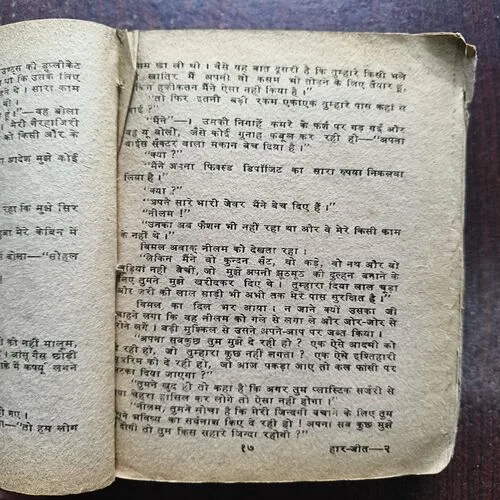 उण्ड्स की डुप्लीकेट
या कि उसके लिए
है । सारा काम
थी ।
हूं ।"—वह बोला
मेरी गैरहाजिरी
को किसी और के
आदेश मुझे कोई
रहा कि मुझे सिर
हुआ मेरे केबिन में
बोला—"सोहल
की नहीं मालूम,
। आंसू गैस छोड़ी
के में कर्फ्यू लगने
गए ।
"तो हम लोग
सम खा ली थी । वैसे यह बात दूसरी है कि तुम्हारे किसी भले
खातिर मैं अपनी वो कसम भी तोड़ने के लिए तैयार हूं,
किन हकीकतन मैंने ऐसा नहीं किया है ।"
"तो फिर इतनी बड़ी रकम एकाएक तुम्हारे पास कहां से
आई ?"
"मैंने"—। उसकी निगाहें कमरे के फर्श पर गड़ गईं और
वह यूं बोली, जैसे कोई गुनाह कबूल कर रही हो—"अपना
बाईस सैक्टर वाला मकान बेच दिया है ।"
"क्या ?"
"मैंने अपना फिक्स्ड डिपॉजिट का सारा रुपया निकलवा
लिया है ।"
"क्या ?"
"अपने सारे भारी जेवर मैंने बेच दिए हैं ।"
"नीलम !"
"उनका अब फैशन भी नहीं रहा था और वे मेरे किसी काम
के नहीं थे ।"
विमल अवाक् नीलम को देखता रहा ।
"लेकिन मैंने वो कुन्दन सैट, वो कड़े, वो नथ और वो
चूड़ियां नहीं बेचीं, जो मुझे अपनी झूठमूठ की दुल्हन बनाने के
लिए तुमने मुझे खरीदकर दिए थे । तुम्हारा दिया लाल चूड़ा
और जरी की लाल साड़ी भी अभी तक मेरे पास सुरक्षित है ।"
विमल का दिल भर आया । न जाने क्यों उसका जी
चाहने लगा कि वह नीलम को गले से लगा ले और जोर-जोर से
रोने लगे । बड़ी मुश्किल से उसने अपने-आप पर जब्त किया ।
"अपना सबकुछ तुम मुझे दे रही हो ? एक ऐसे आदमी को
दे रही हो, जो तुम्हारा कुछ नहीं लगता ? एक ऐसे इश्तिहारी
मुजरिम को दे रही हो, जो आज पकड़ा जाए तो कल फांसी पर
लटका दिया जाएगा ?"
"तुमने खुद ही तो कहा है कि अगर तुम प्लास्टिक सर्जरी से
नया चेहरा हासिल कर लोगे तो ऐसा नहीं होगा ।"
"नीलम, तुमने सोचा है कि मेरी जिन्दगी बचाने के लिए तुम
अपने भविष्य का सर्वनाश किए दे रही हो ! अपना सब कुछ मुझे
दे दोगी तो तुम किस सहारे जिन्दा रहोगी ?"
१७
हार-जीत—२